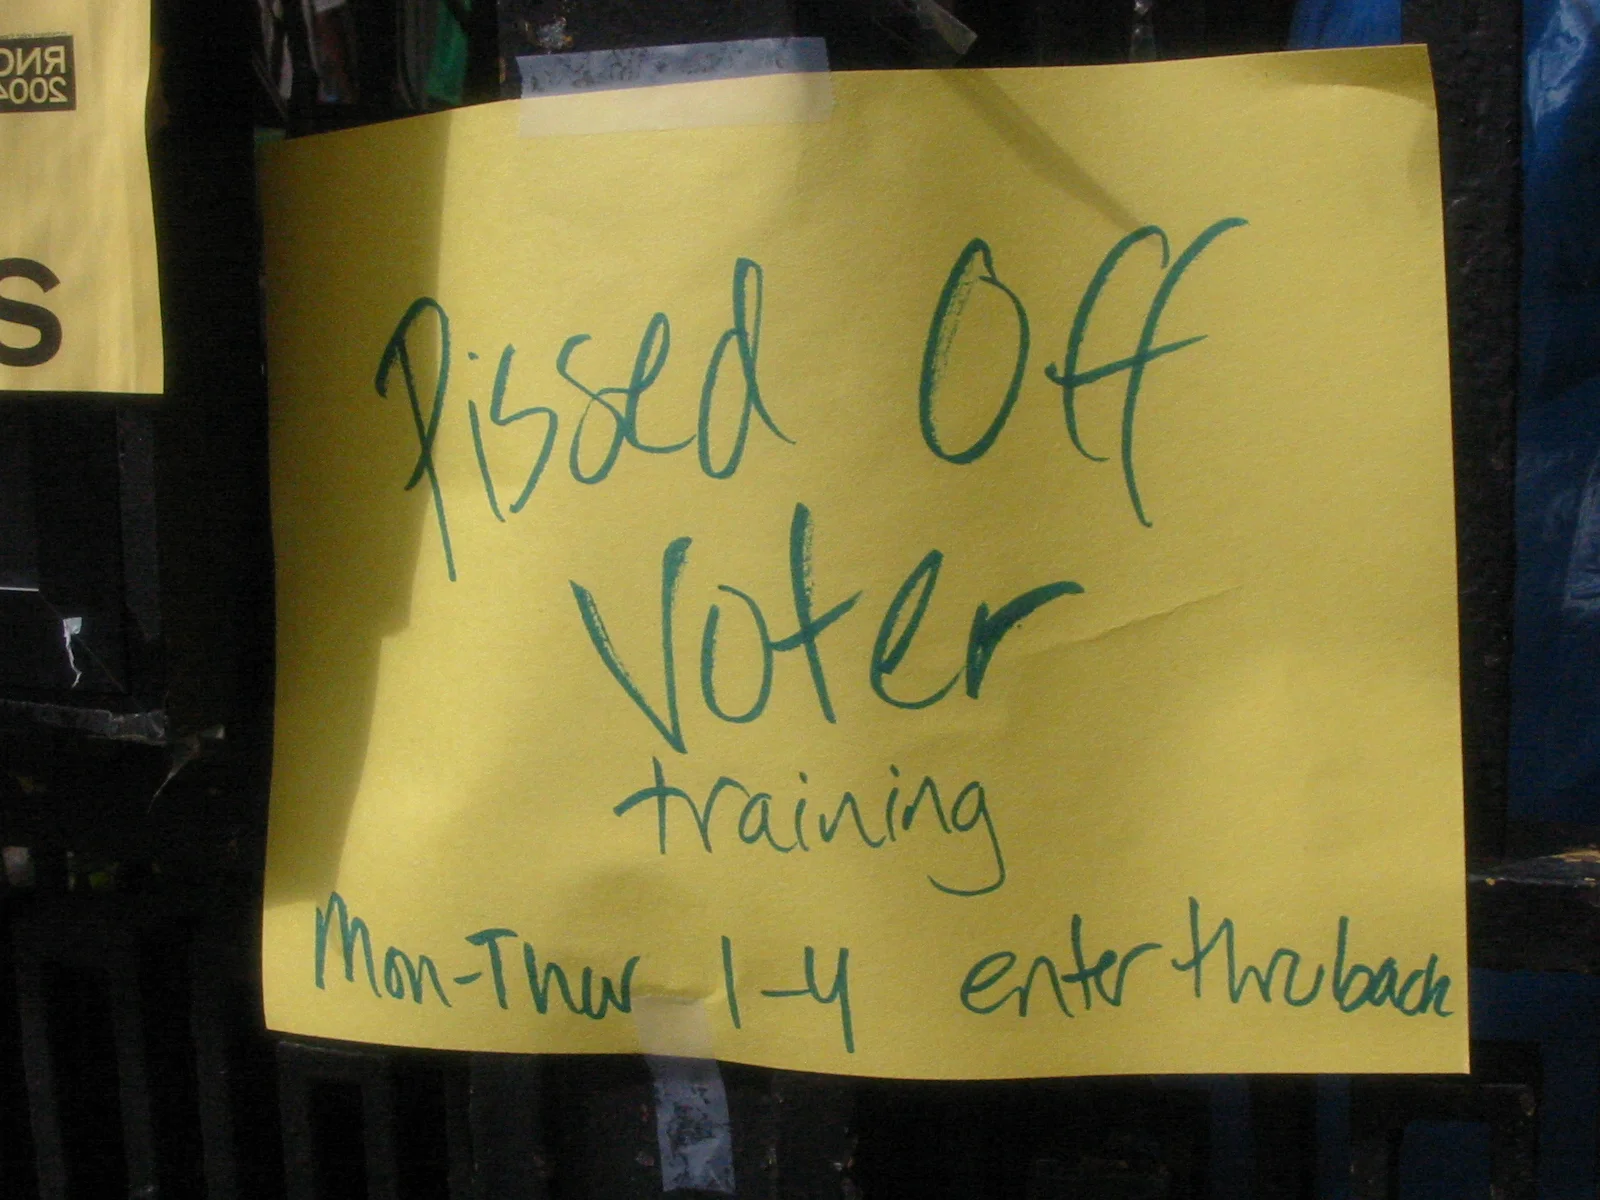 RNC
2004
S
Pissed Off
Voter
training
Mon-Thur 1-4 enter thru back